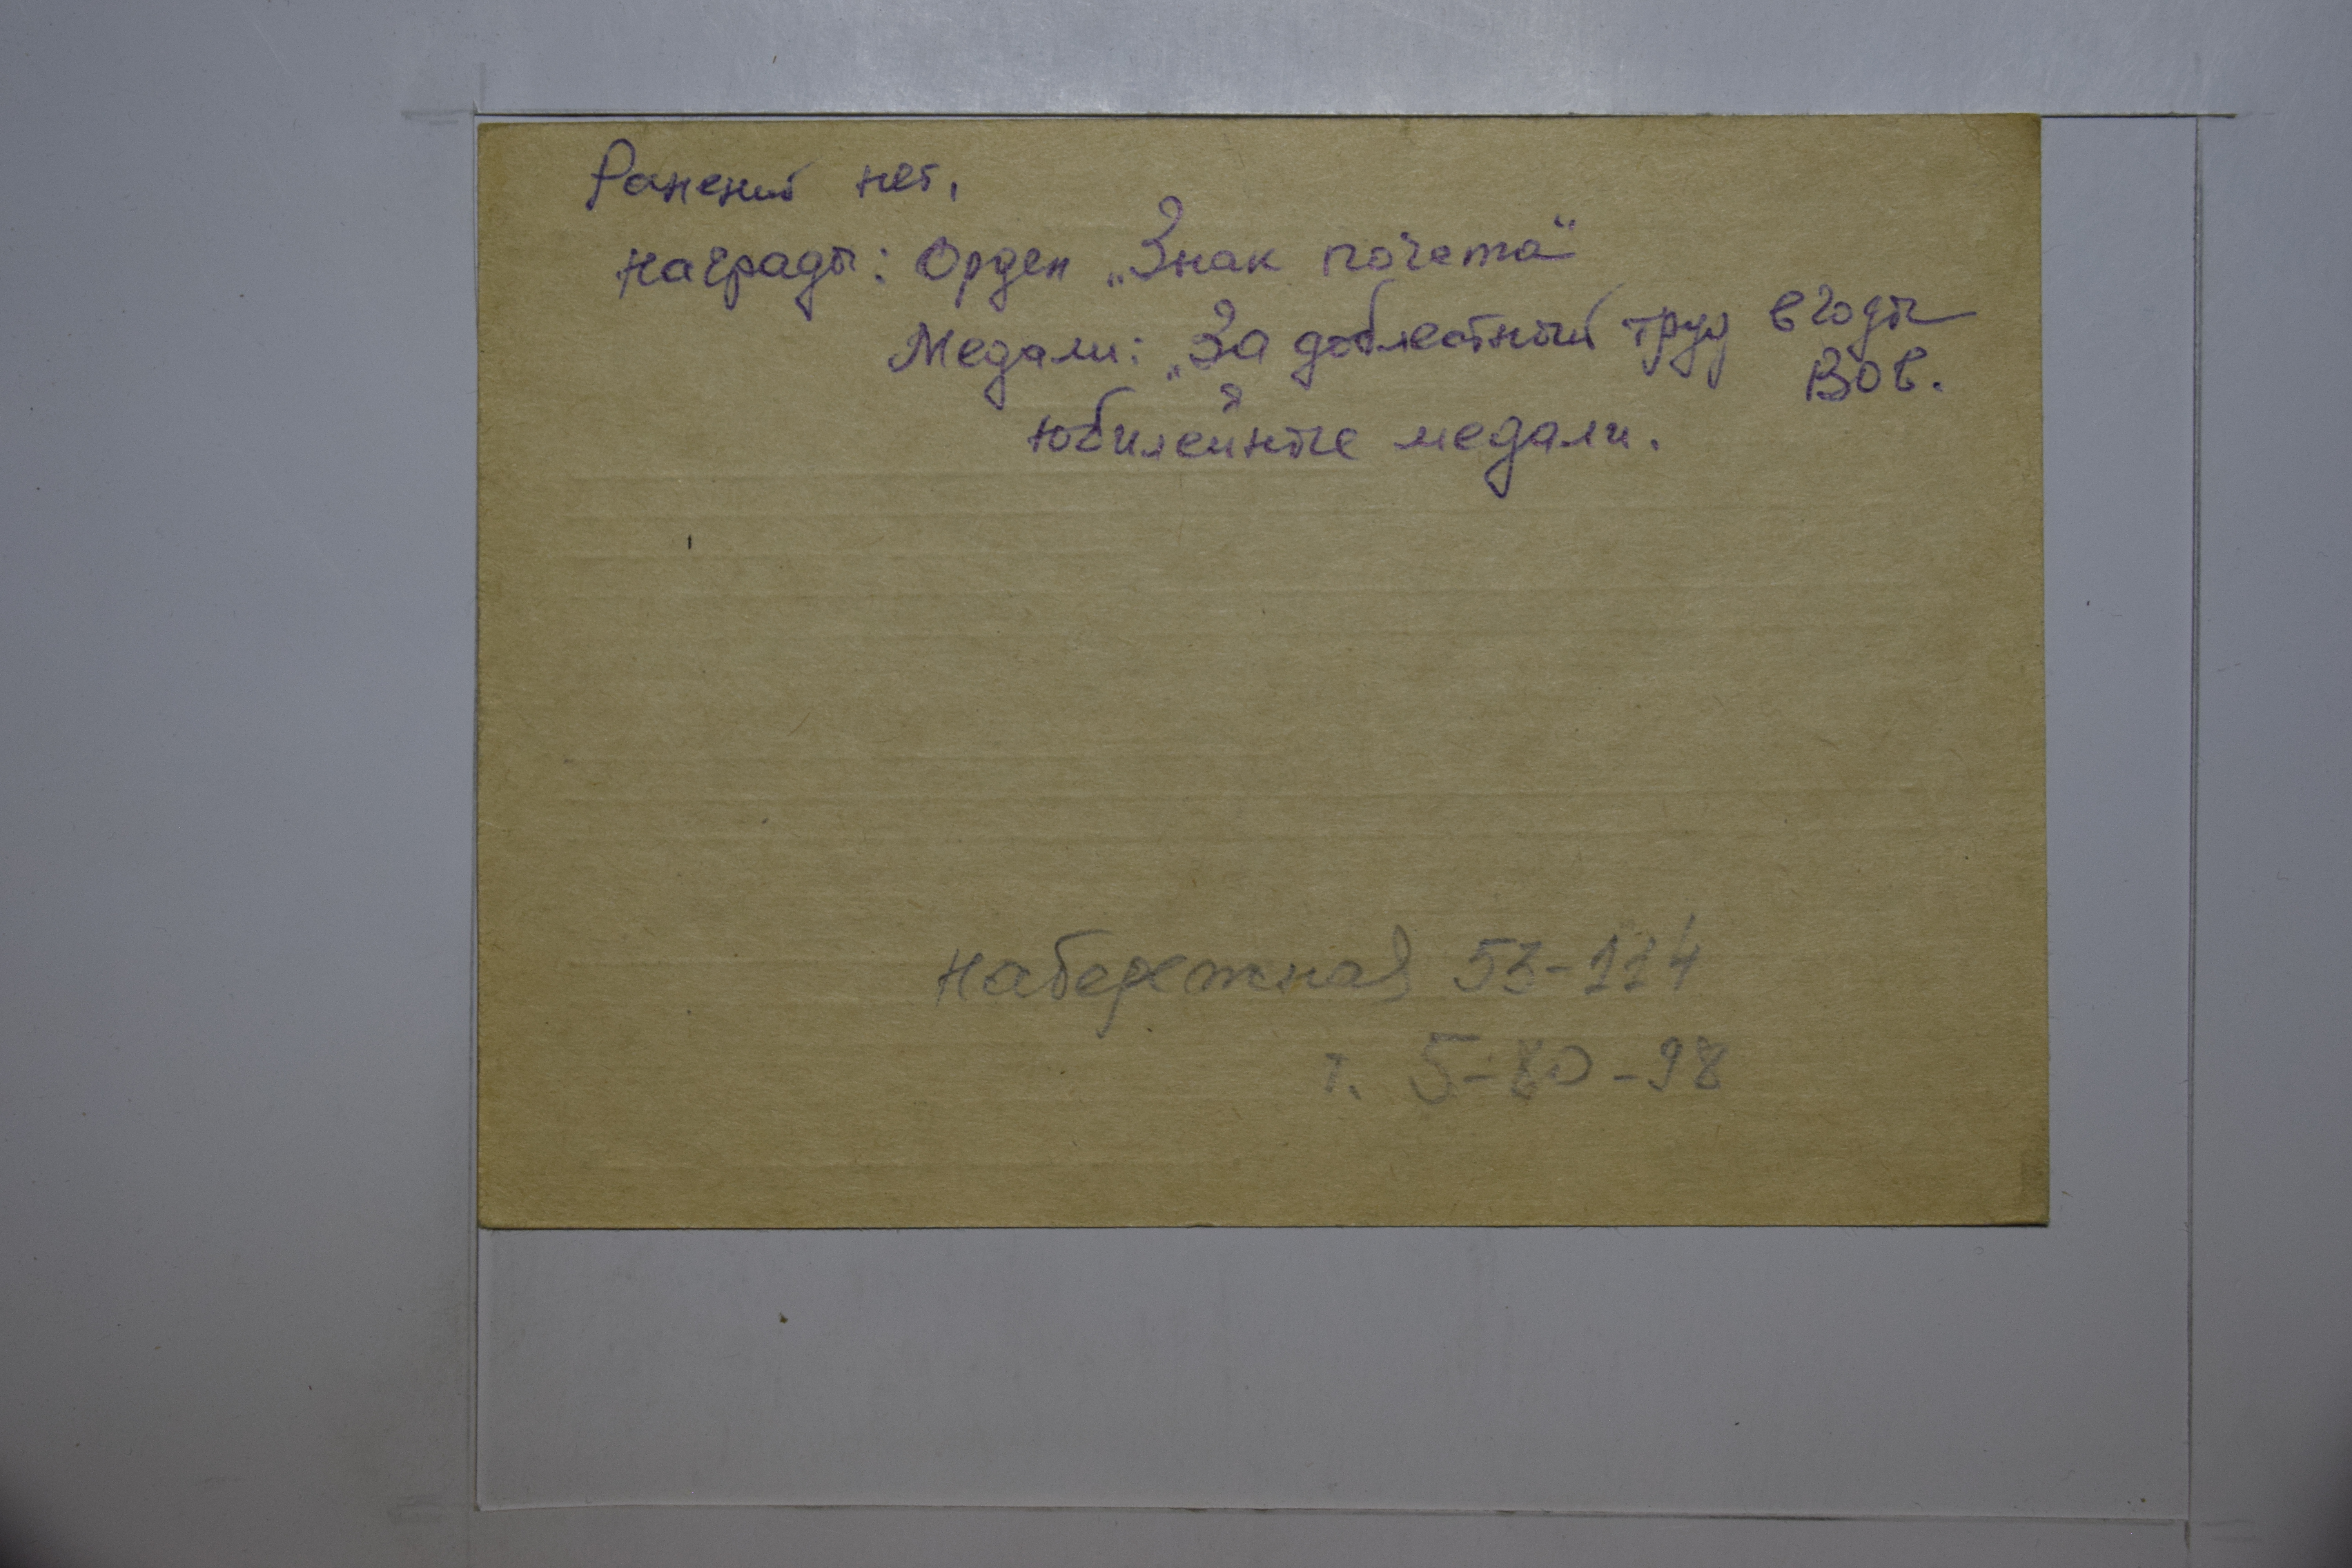 Ранений нет,
награды: Орден „Знак почета“
Медали: „За доблестный труд в годы
ВОв.
юбилейные медали.
Набережная
т. 5-80-98